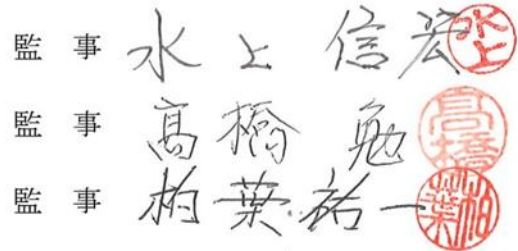 監事 水上 信宏 水上
監事 髙橋 勉 髙橋
監事 柏葉 祐一 柏葉